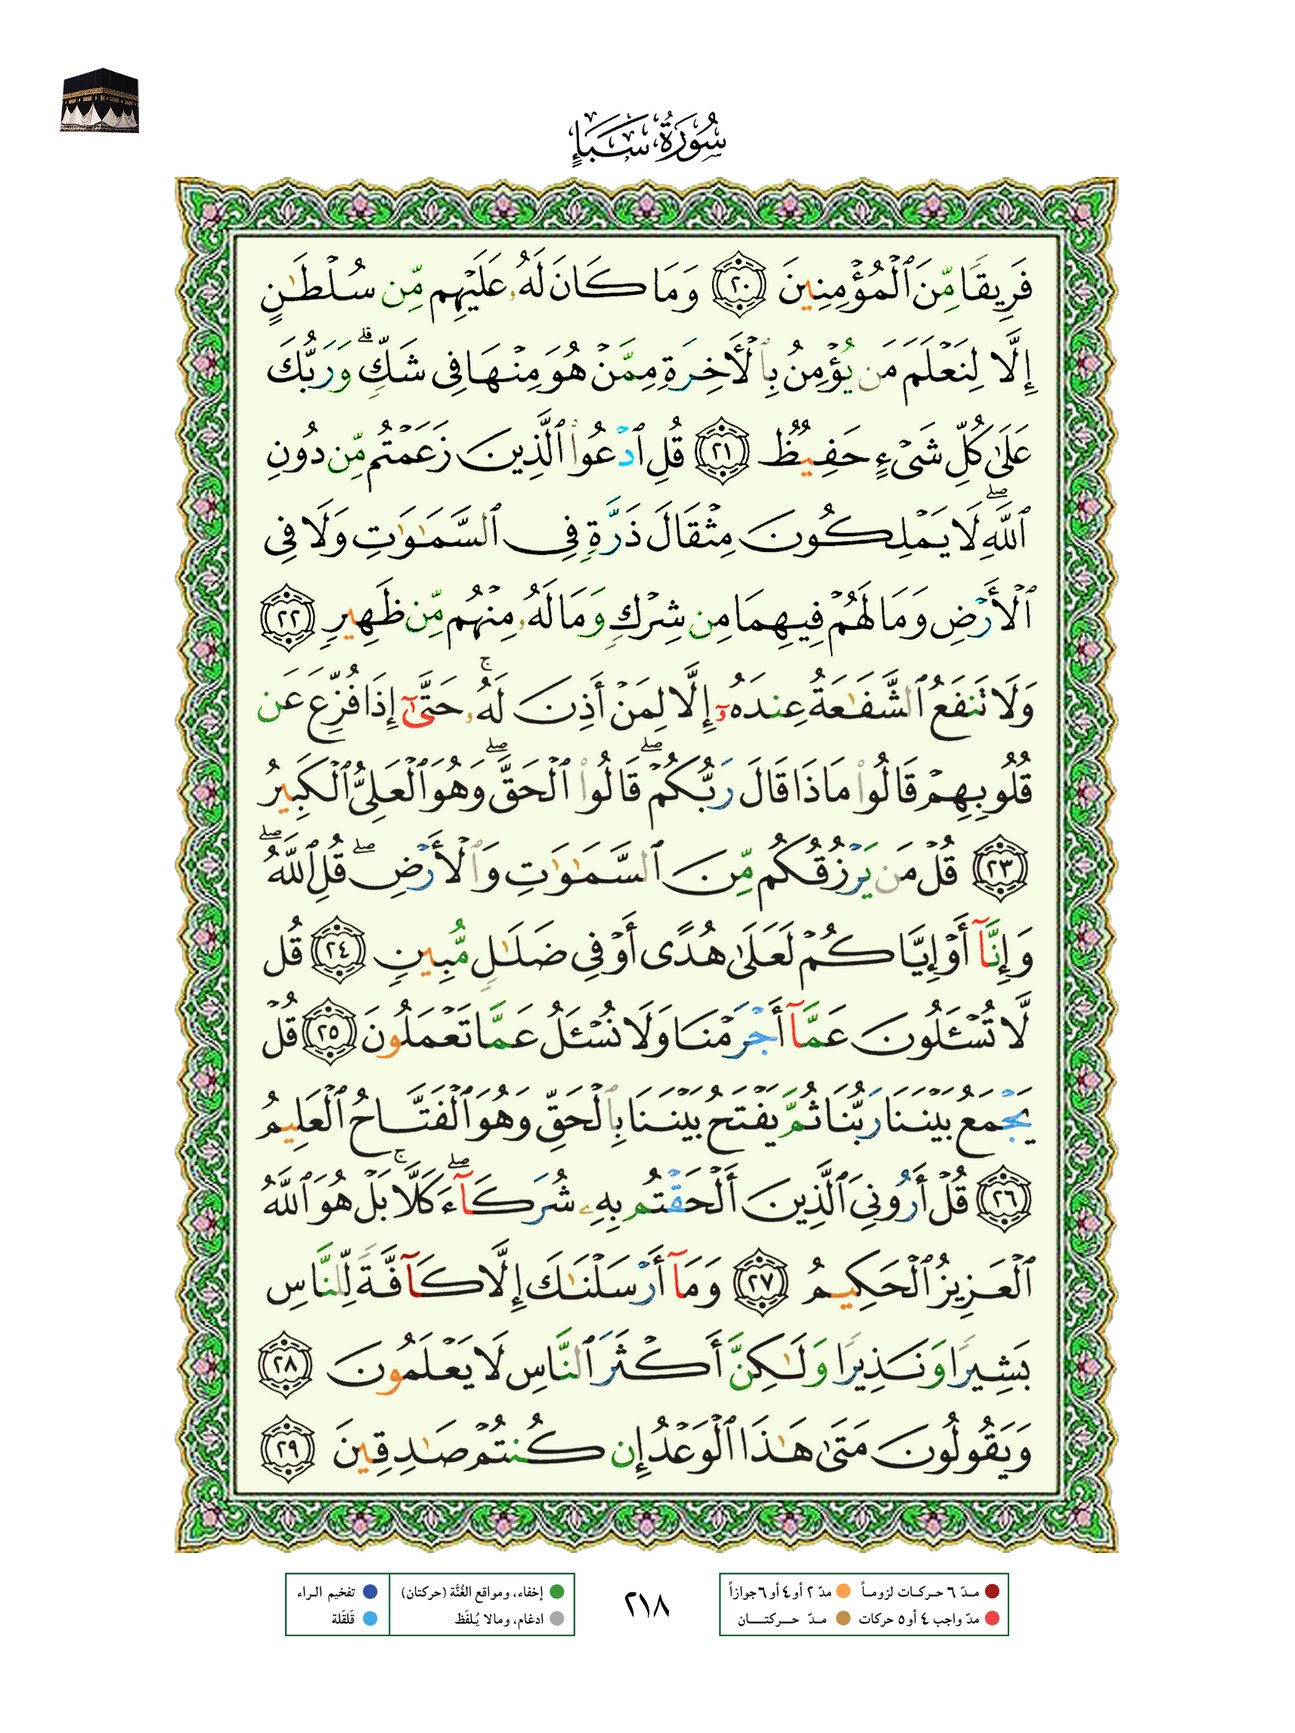 سُورَةُ سَبَإٍ
فَرِيقًا مِّنَ ٱلْمُؤْمِنِينَ ٢٠ وَمَا كَانَ لَهُۥ عَلَيْهِم مِّن سُلْطَٰنٍ
إِلَّا لِنَعْلَمَ مَن يُؤْمِنُ بِٱلْأَخِرَةِ مِمَّنْ هُوَ مِنْهَا فِى شَكٍّۗ وَرَبُّكَ
عَلَىٰ كُلِّ شَىْءٍ حَفِيظٌ ٢١ قُلِ ٱدْعُوا۟ ٱلَّذِينَ زَعَمْتُم مِّن دُونِ
ٱللَّهِۖ لَا يَمْلِكُونَ مِثْقَالَ ذَرَّةٍ فِى ٱلسَّمَٰوَٰتِ وَلَا فِى
ٱلْأَرْضِ وَمَا لَهُمْ فِيهِمَا مِن شِرْكٍ وَمَا لَهُۥ مِنْهُم مِّن ظَهِيرٍ ٢٢
وَلَا تَنفَعُ ٱلشَّفَٰعَةُ عِندَهُۥٓ إِلَّا لِمَنْ أَذِنَ لَهُۥۚ حَتَّىٰٓ إِذَا فُزِّعَ عَن
قُلُوبِهِمْ قَالُوا۟ مَاذَا قَالَ رَبُّكُمْۖ قَالُوا۟ ٱلْحَقَّۖ وَهُوَ ٱلْعَلِىُّ ٱلْكَبِيرُ
٢٣ قُلْ مَن يَرْزُقُكُم مِّنَ ٱلسَّمَٰوَٰتِ وَٱلْأَرْضِۖ قُلِ ٱللَّهُۖ
وَإِنَّآ أَوْ إِيَّاكُمْ لَعَلَىٰ هُدًى أَوْ فِى ضَلَٰلٍ مُّبِينٍ ٢٤ قُل
لَّا تُسْـَٔلُونَ عَمَّآ أَجْرَمْنَا وَلَا نُسْـَٔلُ عَمَّا تَعْمَلُونَ ٢٥ قُلْ
يَجْمَعُ بَيْنَنَا رَبُّنَا ثُمَّ يَفْتَحُ بَيْنَنَا بِٱلْحَقِّ وَهُوَ ٱلْفَتَّاحُ ٱلْعَلِيمُ
٢٦ قُلْ أَرُونِىَ ٱلَّذِينَ أَلْحَقْتُم بِهِۦ شُرَكَآءَۖ كَلَّاۚ بَلْ هُوَ ٱللَّهُ
ٱلْعَزِيزُ ٱلْحَكِيمُ ٢٧ وَمَآ أَرْسَلْنَٰكَ إِلَّا كَآفَّةً لِّلنَّاسِ
بَشِيرًا وَنَذِيرًا وَلَٰكِنَّ أَكْثَرَ ٱلنَّاسِ لَا يَعْلَمُونَ ٢٨
وَيَقُولُونَ مَتَىٰ هَٰذَا ٱلْوَعْدُ إِن كُنتُمْ صَٰدِقِينَ ٢٩
مدّ ٦ حركات لزوماً
مدّ ٢ أو ٤ أو ٦ جوازاً
مدّ واجب ٤ أو ٥ حركات
مدّ حركتان
٢١٨
إخفاء، ومواقع الغُنَّة (حركتان)
تفخيم الراء
ادغام، ومالا يُلفَظ
قَلقَلة